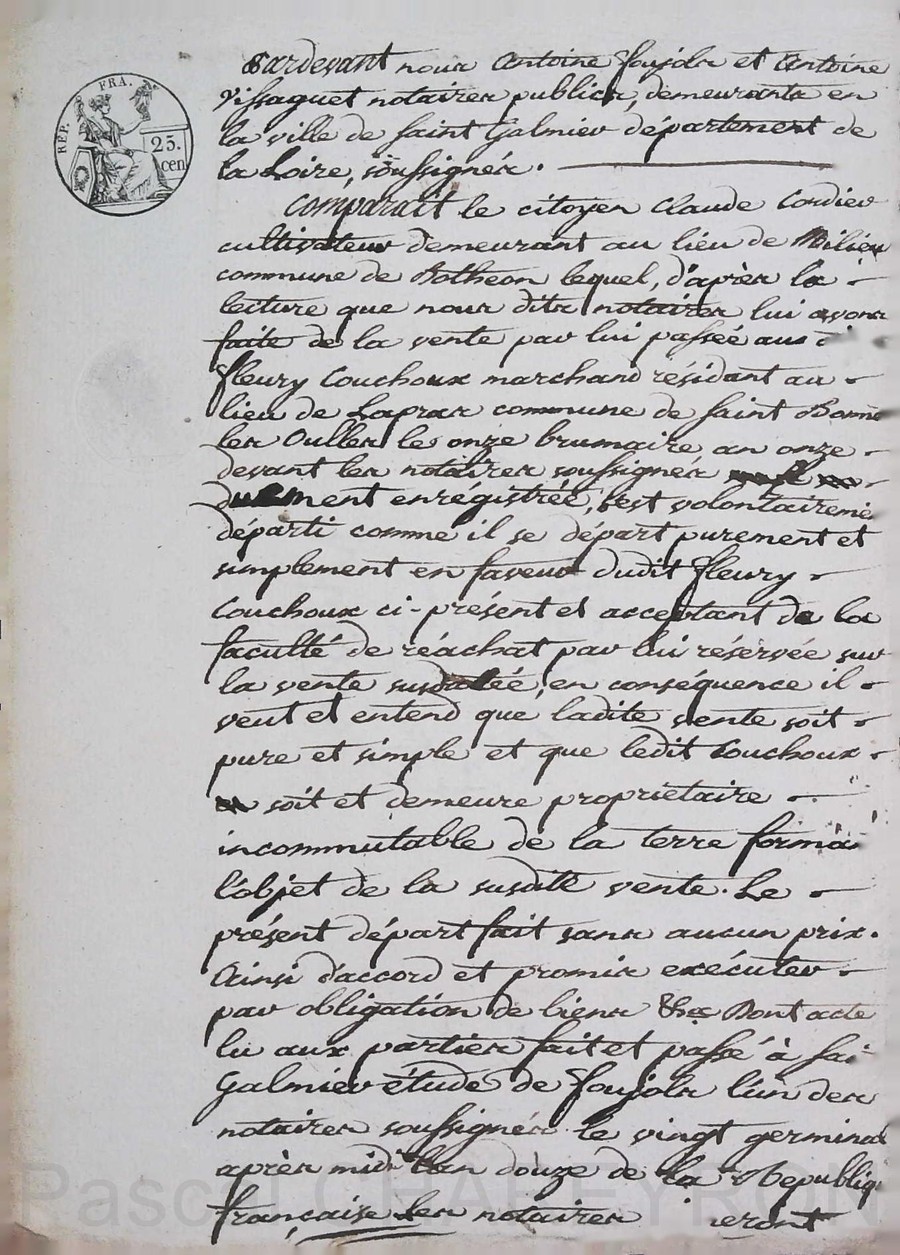 REP. FRA.
25.
cen
Pardevant nous Antoine foujols et Antoine
Vissaguet notaires publics, demeurants en
la ville de saint Galmier département de
la Loire, soussignés.
Comparait le citoyen Claude Cordier
cultivateur demeurant au lieu de
commune de Botheon lequel, d'après la
lecture que nous dits notaires lui avons
faite de la vente par lui passée aus
fleury Couchoux marchand résidant au
lieu de Lapras commune de saint Bonne
les Oulles le onze brumaire, an onze
devant les notaires soussignés
duement enregistrée, s'est volontaireme
départi comme il se départ purement et
simplement en faveur dudit fleury
Couchoux ci-présent et acceptant de la
faculté de réachat par lui réservée sur
la vente susdatée, en conséquence il
veut et entend que ladite vente soit
pure et simple et que ledit Couchoux
soit et demeure propriétaire
incommutable de la terre forman
l'objet de la susdite vente. Le
présent départ fait sans aucun prix.
Ainsi d'accord et promis exécuter
par obligation de biens &a Dont acte
lu aux parties fait et passé à sai
Galmier étude de foujols l'un des
notaires soussignés le vingt germinal
après midi l'an douze de la Republiq
française les notaires
Pascal CHALEYRON